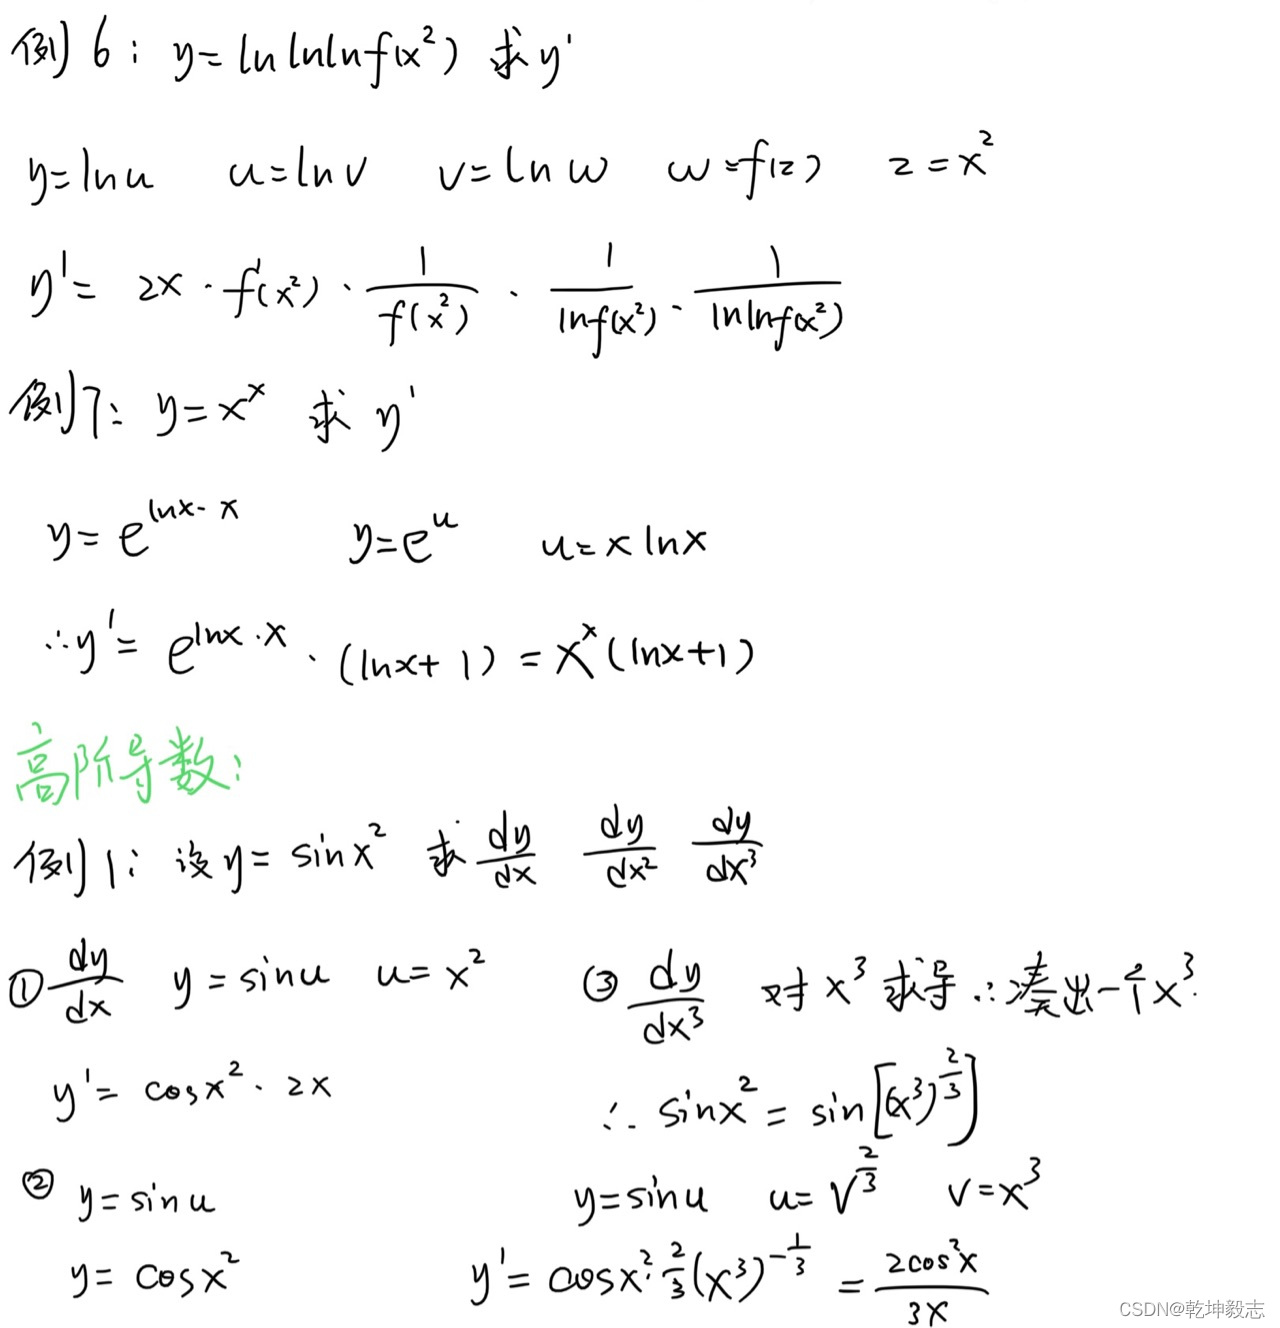 例6: y=ln lnlnf(x²) 求y'
y=lnu u=lnv v=lnw w=f(z) z=x²
y'= 2x · f'(x²) · 1/f(x²) · 1/lnf(x²) · 1/lnlnf(x²)
例7: y=x^x 求 y'
y=e^(lnx·x) y=e^u u=x lnx
∴y'= e^(lnx·x) · (lnx+1) = x^x(lnx+1)
高阶导数:
例1: 设y= sinx² 求 dy/dx dy/dx² dy/dx³
① dy/dx y=sinu u=x²
y'= cosx² · 2x
② y=sinu
y= cosx²
③ dy/dx³ 对x³求导 ∴凑出一个x³.
∴ sinx² = sin[(x³)^(2/3)]
y=sinu u=v^(2/3) v=x³
y'= cosx²·2/3(x³)^(-1/3) = 2cos²x/3x
CSDN@乾坤毅志